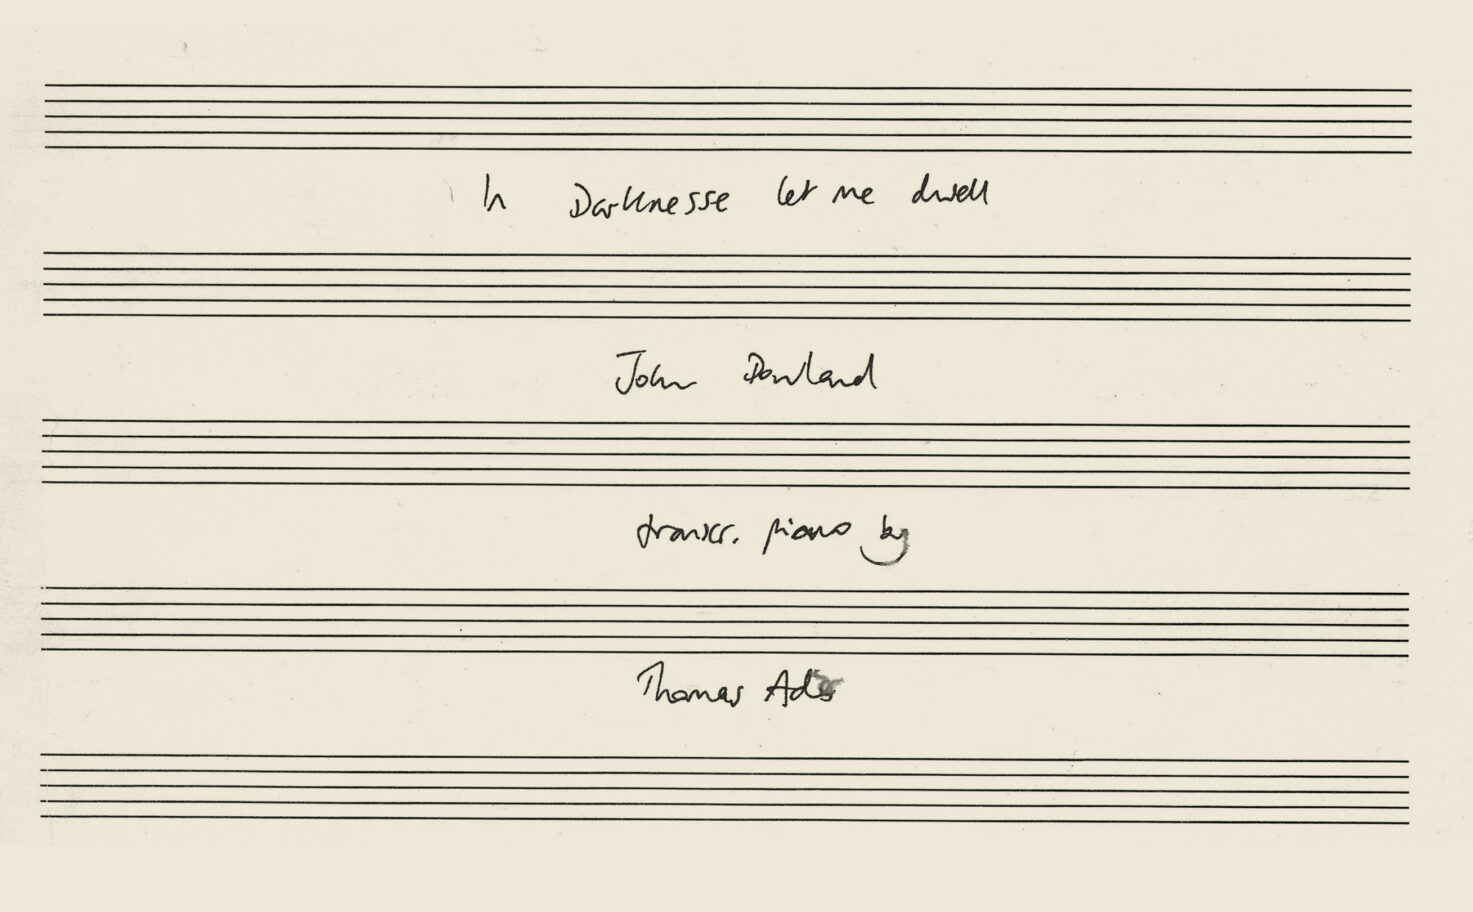 In Darknesse let me dwell
John Dowland
transcr. piano by
Thomas Adès